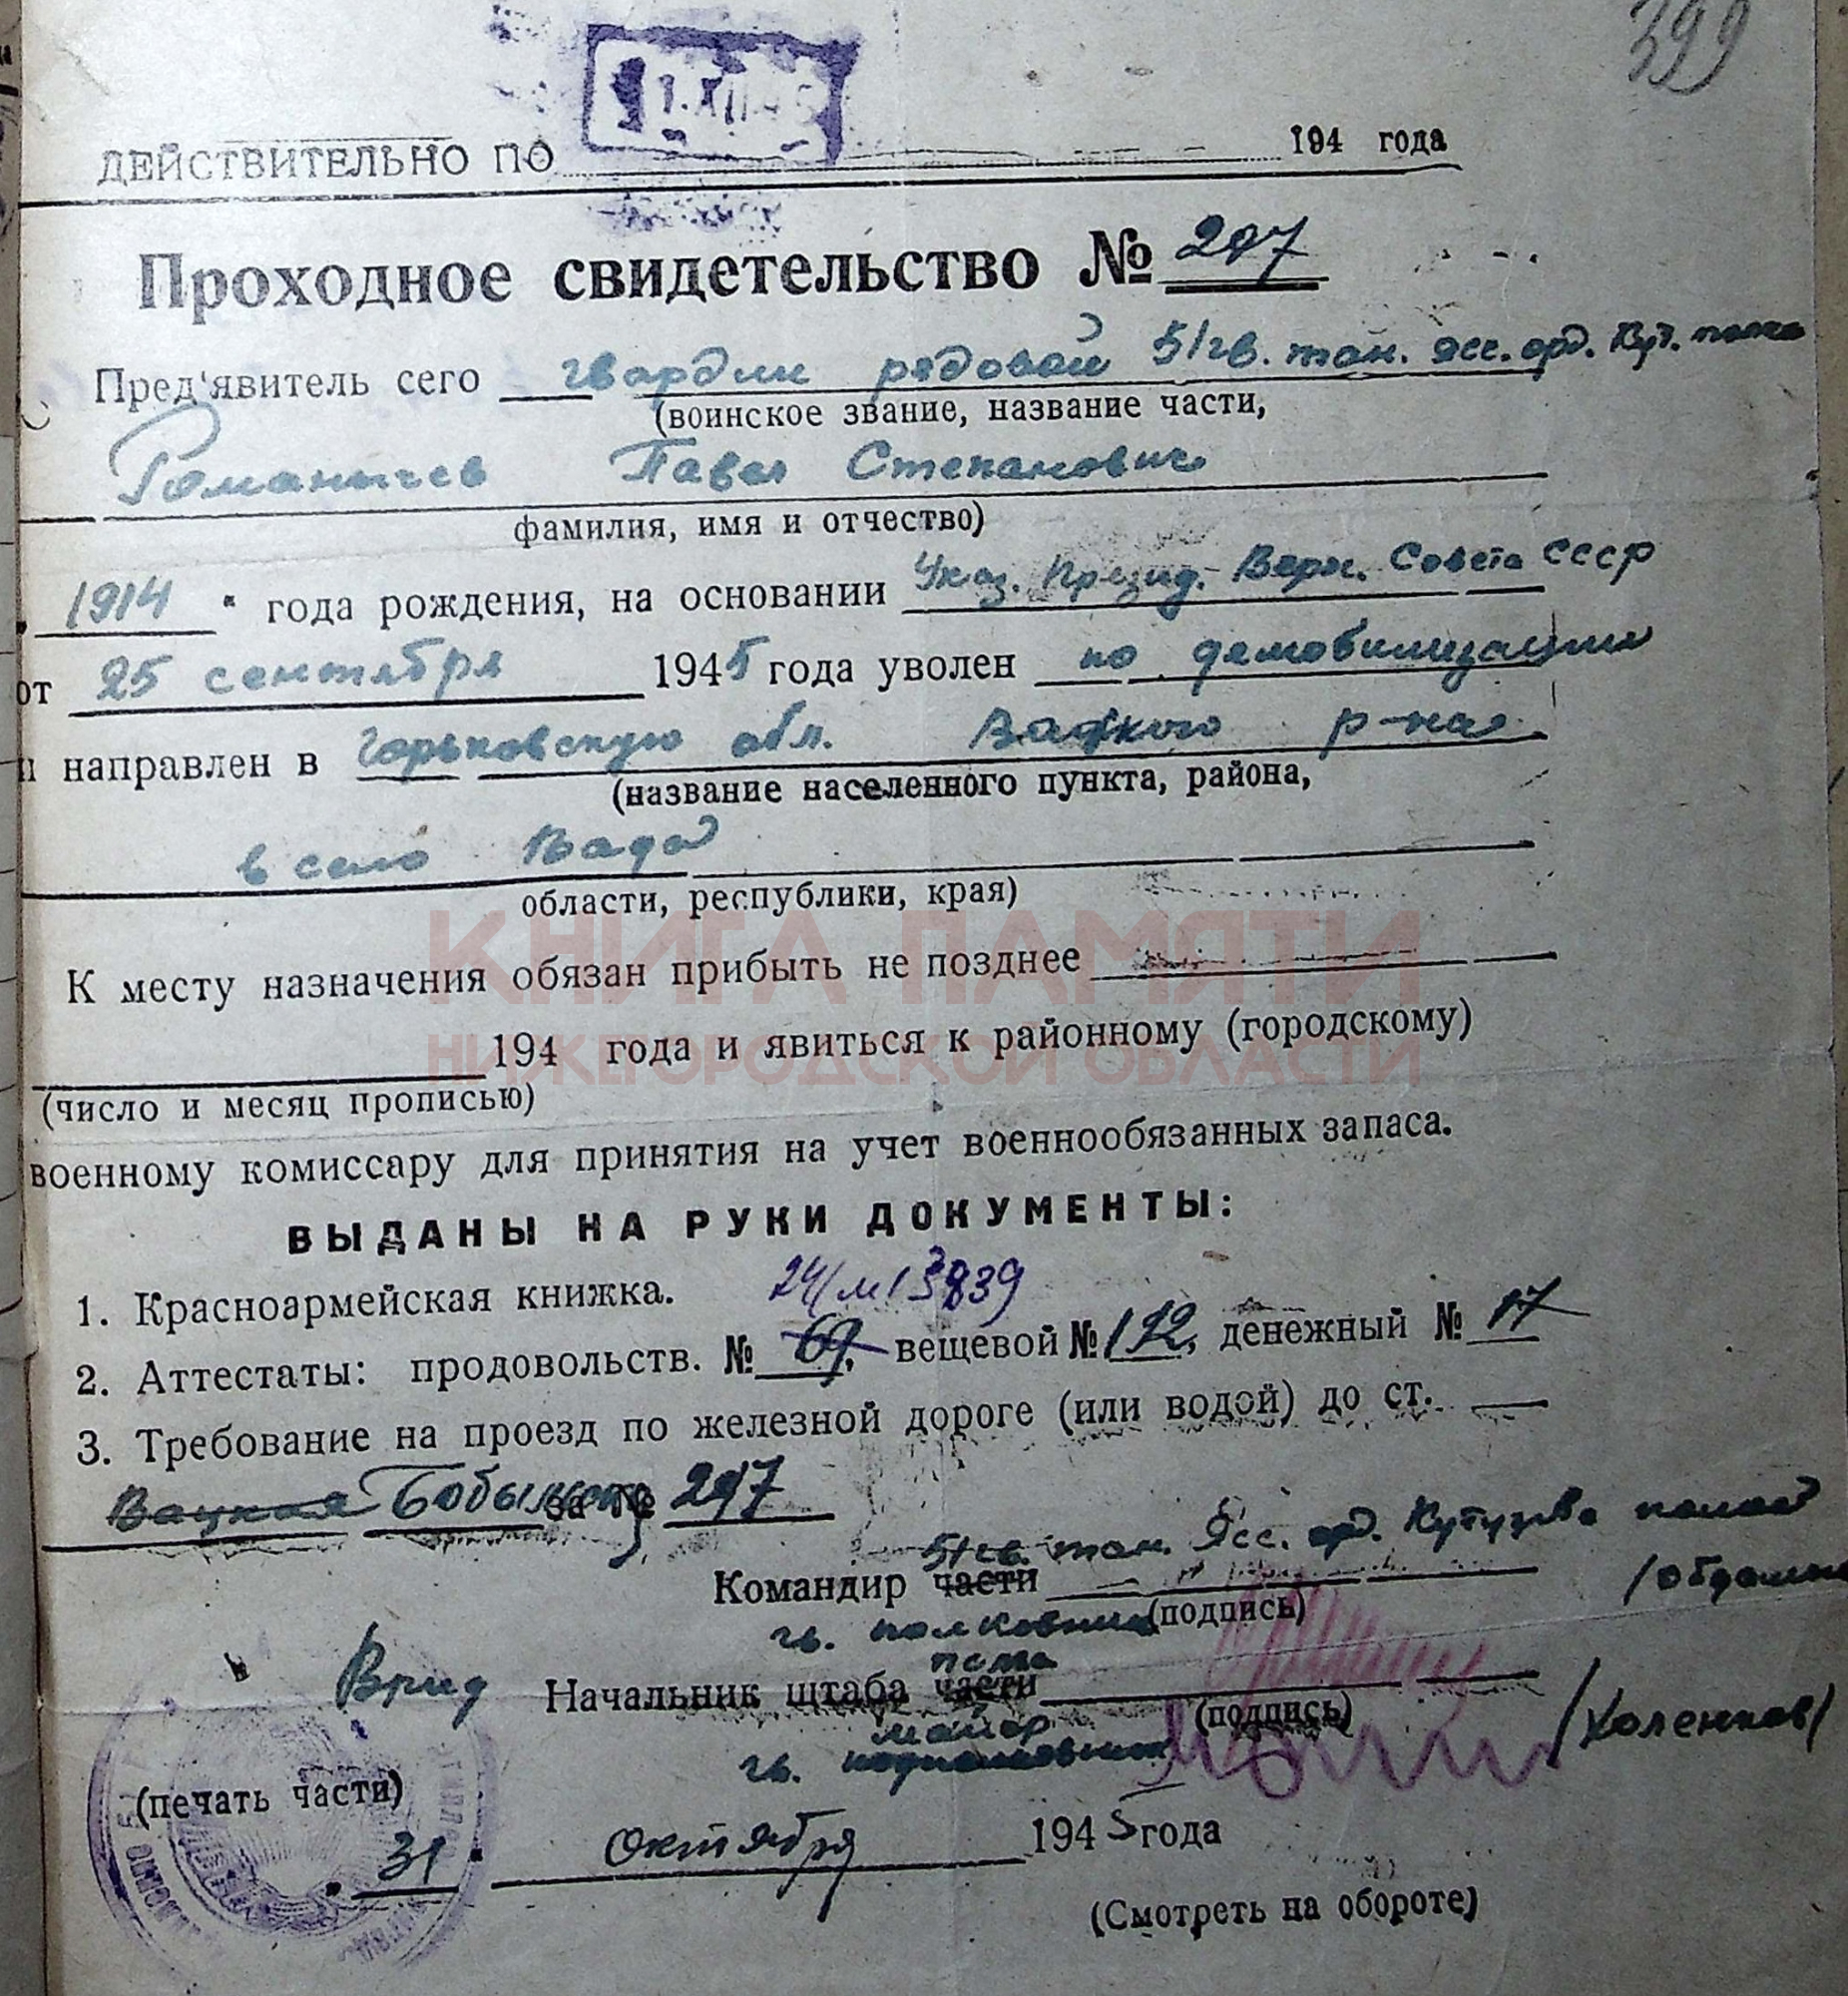 399
ДЕЙСТВИТЕЛЬНО ПО 194 года
Проходное свидетельство № 297
Пред'явитель сего гвардии рядовой 51 гв. тан. Ясс. орд. Кут. полка
(воинское звание, название части,
Романычев Павел Степанович
фамилия, имя и отчество)
1914 " года рождения, на основании Указ. Презид. Верх. Совета СССР
от 25 сентября 1945 года уволен по демобилизации
и направлен в Горьковскую обл. р-на
(название населенного пункта, района,
в село Вад
области, республики, края)
КНИГА ПАМЯТИ
К месту назначения обязан прибыть не позднее
194 года и явиться к районному (городскому)
НИЖЕГОРОДСКОЙ ОБЛАСТИ
(число и месяц прописью)
военному комиссару для принятия на учет военнообязанных запаса.
ВЫДАНЫ НА РУКИ ДОКУМЕНТЫ:
1. Красноармейская книжка.
2. Аттестаты: продовольств. № 69, вещевой № 192, денежный № 17
3. Требование на проезд по железной дороге (или водой) до ст.
за № 297
51 гв. тан. Ясс. орд. Кутузова полка
Командир части
гв. полковник (подпись)
полка
Врид Начальник штаба части
майор (подпись) /Холенков/
гв. подполковник
(печать части)
31 " октября 1945 года
(Смотреть на обороте)